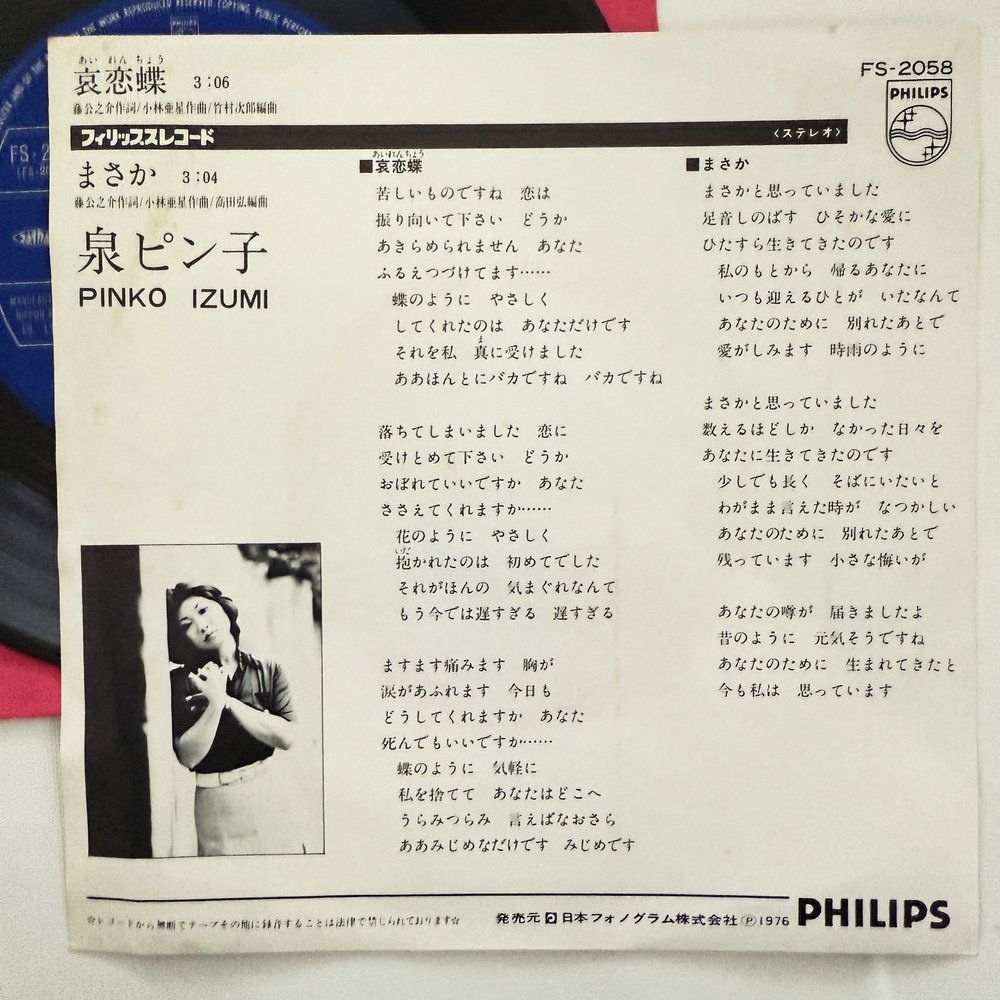 哀恋蝶 3:06
あいれんちょう
藤公之介作詞/小林亜星作曲/竹村次郎編曲
FS-2058
PHILIPS
フィリップスレコード
〈ステレオ〉
まさか 3:04
藤公之介作詞/小林亜星作曲/高田弘編曲
泉ピン子
PINKO IZUMI
■哀恋蝶
あいれんちょう
苦しいものですね 恋は
振り向いて下さい どうか
あきらめられません あなた
ふるえつづけてます……
蝶のように やさしく
してくれたのは あなただけです
それを私 真に受けました
ま
ああほんとにバカですね バカですね
落ちてしまいました 恋に
受けとめて下さい どうか
おぼれていいですか あなた
ささえてくれますか……
花のように やさしく
抱かれたのは 初めてでした
いだ
それがほんの 気まぐれなんて
もう今では遅すぎる 遅すぎる
ますます痛みます 胸が
涙があふれます 今日も
どうしてくれますか あなた
死んでもいいですか……
蝶のように 気軽に
私を捨てて あなたはどこへ
うらみつらみ 言えばなおさら
ああみじめなだけです みじめです
■まさか
まさかと思っていました
足音しのばす ひそかな愛に
ひたすら生きてきたのです
私のもとから 帰るあなたに
いつも迎えるひとが いたなんて
あなたのために 別れたあとで
愛がしみます 時雨のように
まさかと思っていました
数えるほどしか なかった日々を
あなたに生きてきたのです
少しでも長く そばにいたいと
わがまま言えた時が なつかしい
あなたのために 別れたあとで
残っています 小さな悔いが
あなたの噂が 届きましたよ
昔のように 元気そうですね
あなたのために 生まれてきたと
今も私は 思っています
☆レコードから無断でテープその他に録音することは法律で禁じられております☆
発売元 日本フォノグラム株式会社 Ⓟ1976 PHILIPS